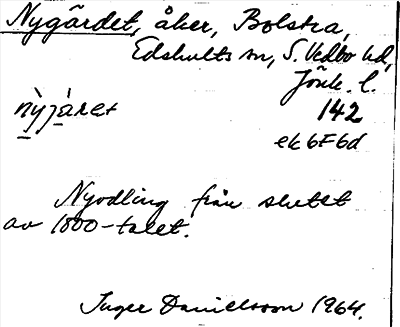 Nygärdet, åker, Bolstra,
Edshults sn, S. Vedbo hd,
Jönk. l.
nỳjàret 142
ek 6F6d
Nyodling från slutet
av 1800-talet.
Inger Danielsson 1964.